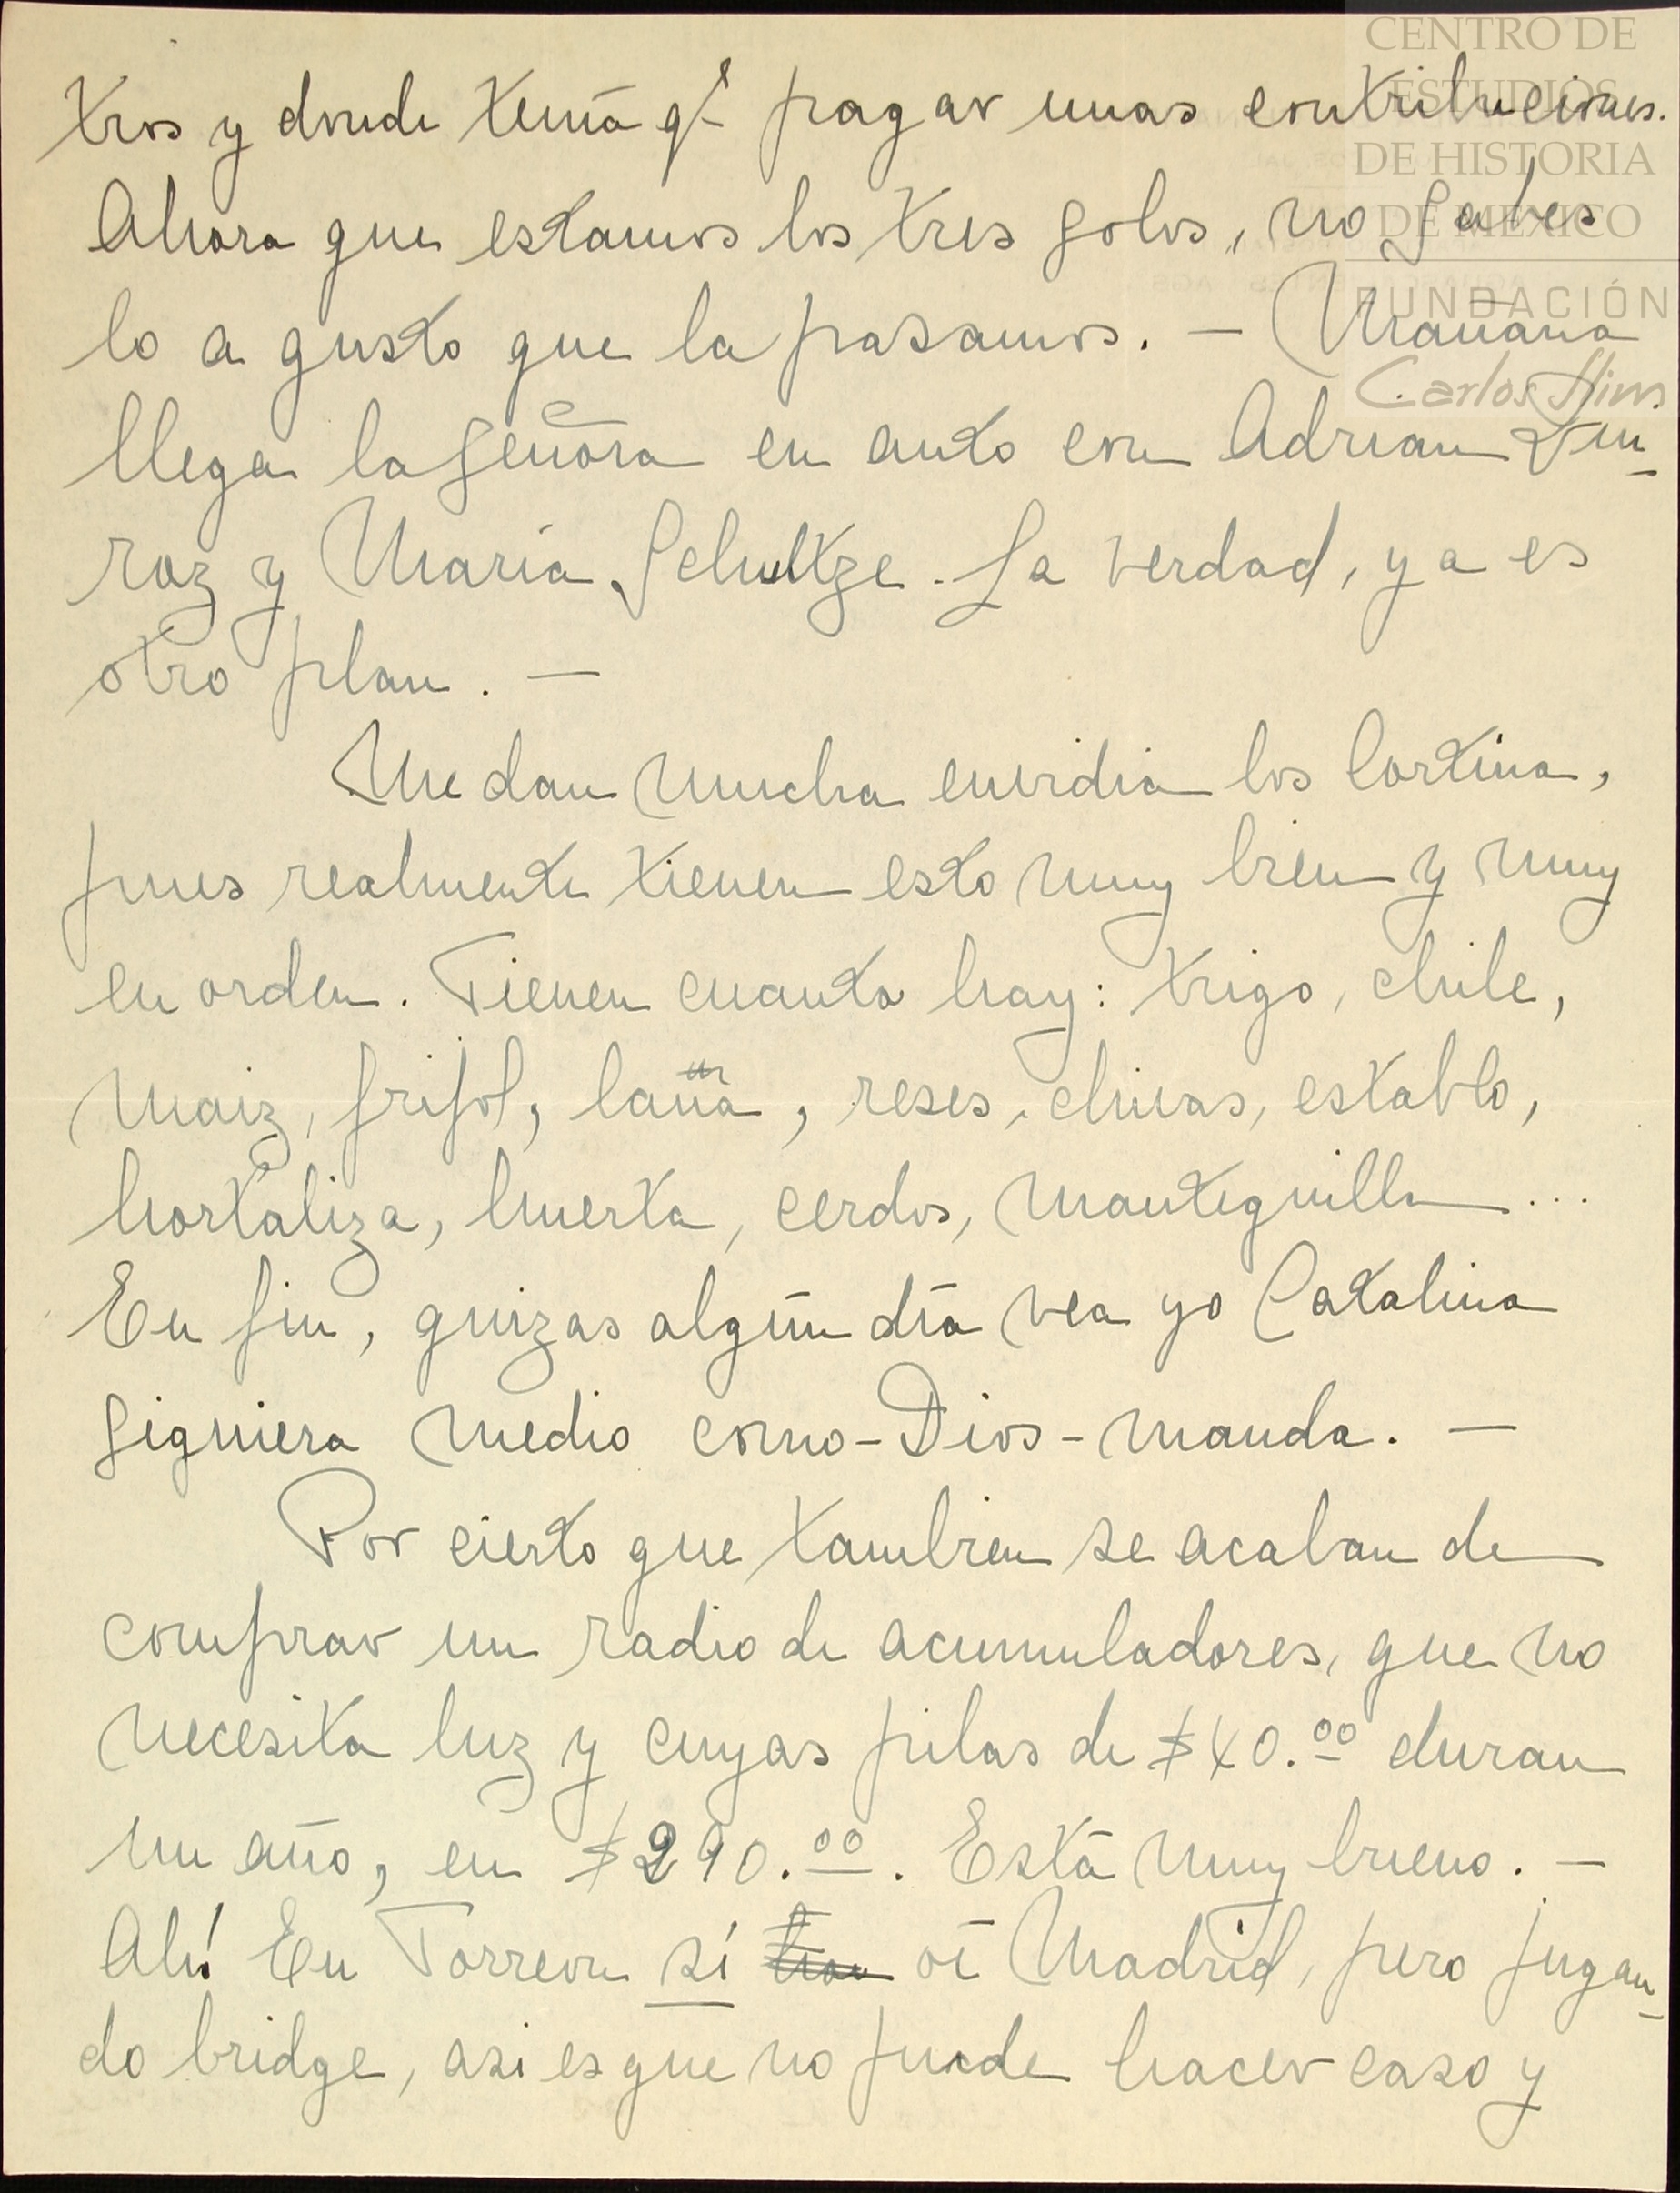 CENTRO DE
ESTUDIOS
DE HISTORIA
DE MÉXICO
FUNDACIÓN
Carlos Slim
tros y donde tenía qe pagar unas contribuciones.
Ahora que estamos los tres solos, no sabes
lo a gusto que la pasamos. — Mañana
llega la señora en auto con Adrian
raz y María Schultze. La verdad, ya es
otro plan. —
Me dan mucha envidia los Cortina,
pues realmente tienen esto muy bien y muy
en orden. Tienen cuanto hay: trigo, chile,
maiz, frijol, lana, reses, chivas, establo,
hortaliza, huerta, cerdos, mantequilla ...
En fin, quizas algún día vea yo Catalina
siquiera medio como-Dios-manda. —
Por cierto que tambien se acaban de
comprar un radio de acumuladores, que no
necesita luz y cuyas pilas de $40.00 duran
un año, en $290.00. Está muy bueno. —
Ah! En Torreon sí oí Madrid, pero jugan-
do bridge, asi es que no pude hacer caso y